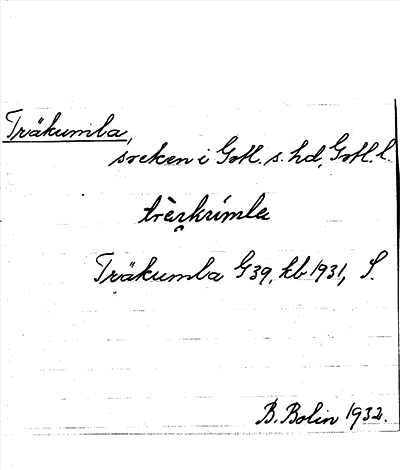 Träkumla,
socken i Gotl. s. hd, Gotl. l.
trèᶏkrímla
Träkumla G 39, kb 1931, S.
B. Bolin 1932.